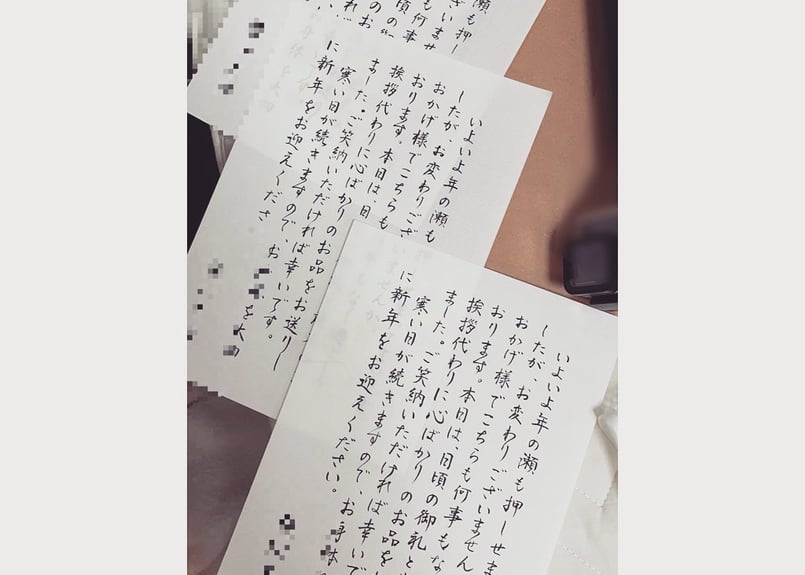 瀬も押し
ざいませ
も何事
いよいよ年の瀬も
したが、お変わりござ
おかげ様でこちらも
おります。本日は、日
挨拶代わりに心ばかりのお品をお送りし
ました。ご笑納いただければ幸いです。
寒い日が続きますので、お
に新年をお迎えくださ
いよいよ年の瀬も押しせま
したが、お変わりございません
おかげ様でこちらも何事もな
おります。本日は、日頃の御礼と
挨拶代わりに心ばかりのお品を
ました。ご笑納いただければ幸いで
寒い日が続きますので、お身体
に新年をお迎えください。